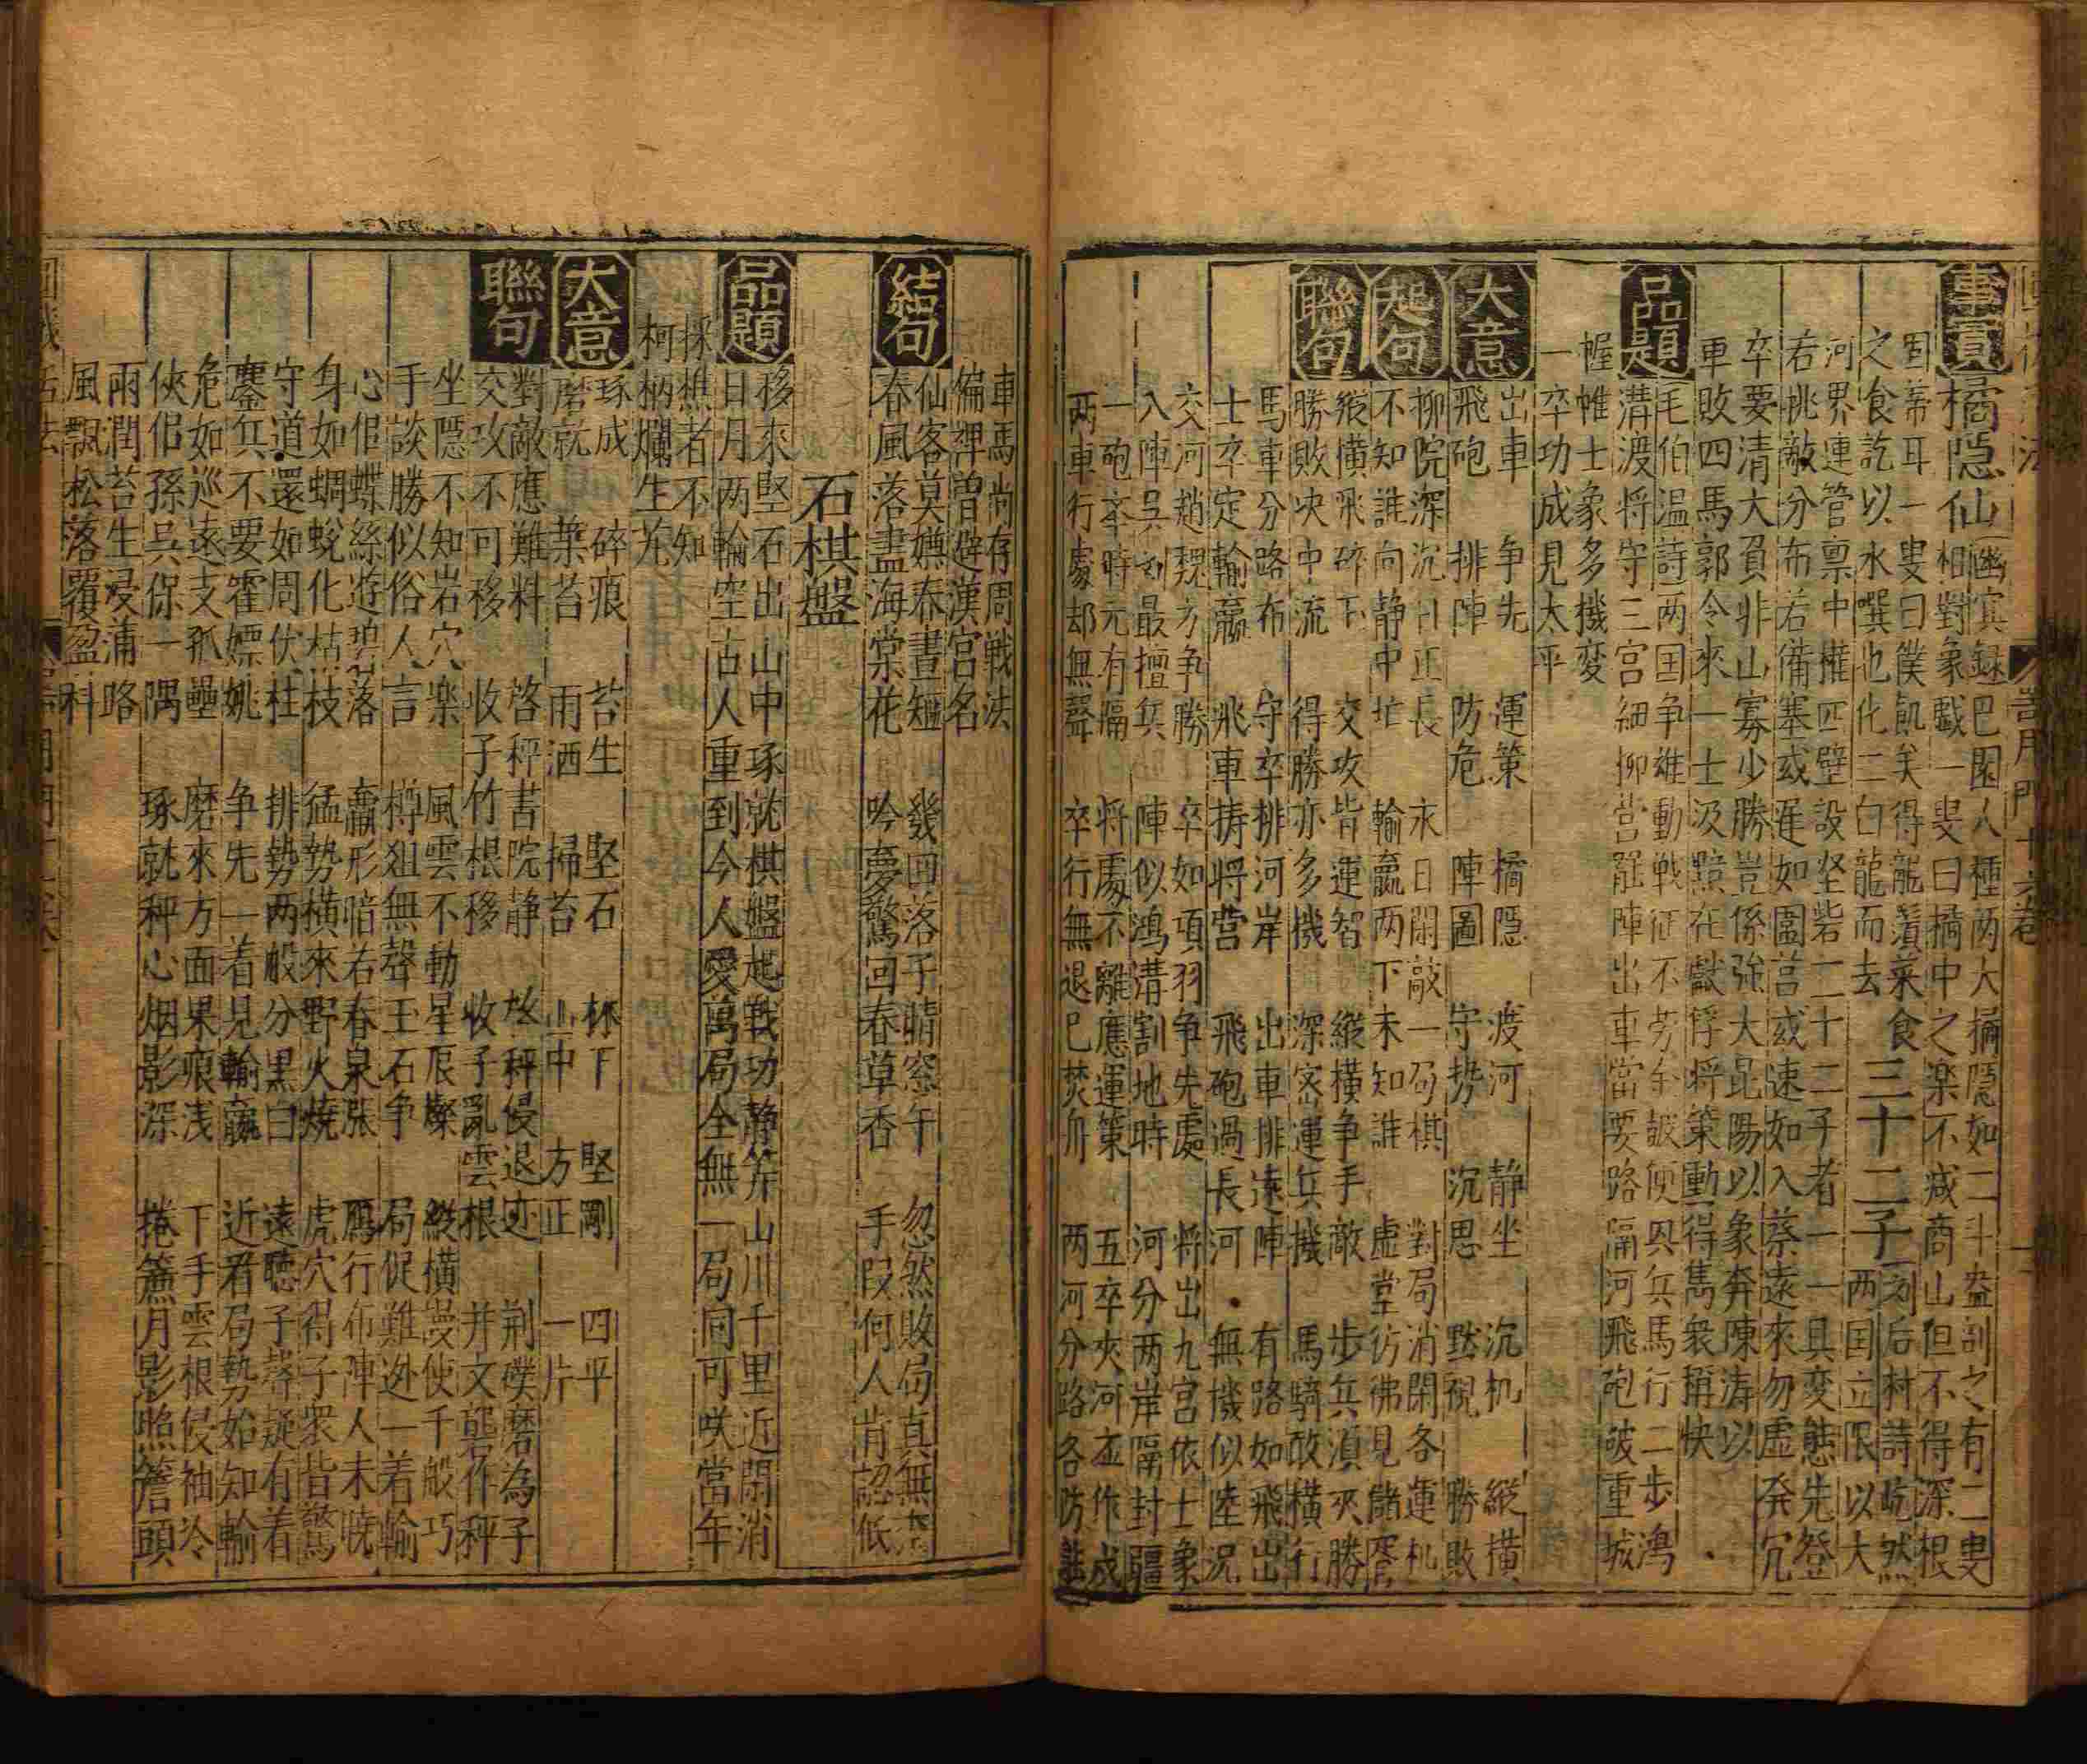 事實 橘隐仙 幽冥録巴園人種两大橘隠如二斗盎剖之有二叟
相對象戲一叟曰橘中之楽不减商山但不得深根
固蒂耳一叟曰僕飢矣得龍鬚菜食
之食訖以水噀也化二白龍而去 三十二子 刘后村詩屹然
两国立限以大
河界連管禀中權四壁設坚砦二二十二子者一一具变態先登
右挑敵分布若備塞或遲如圍莒或速如入蔡遠來勿虚発冗
卒要清大負非山寡少勝豈係強大昆陽以象奔陳涛以
車敗四馬郭令來一士汲黯在獻俘将策動得雋衆稱快
品題 毛伯温詩两国争雄動戦征不劳金皷便具兵馬行二步鴻
溝渡将守三宫細柳营 陣出車當要路隔河飛砲破重城
幄帷士象多機变
一卒功成見太平
大意 出車 争先 運策 橘隐 渡河 静坐 沉机 縱横
飛砲 排陣 防危 陣圖 守势 沉思 黙視 勝敗
起句 柳院深沉日正長 永日閑敲一局棋 對局消閑各運机
不知誰向静中忙 輸嬴两下未知誰 虚堂彷彿見儲
聯句 縱横飛碎玉 交攻皆運智 縱横争手敵 步兵湏夾勝
勝敗决中流 得勝亦多機 深宻運兵機 馬騎敢横行
馬車分路布 守卒排河岸 出車排遠陣 有路如飛出
士卒定輸嬴 飛車擣将营 飛砲過長河 無機似陸况
交河趙魏方争勝 卒如項羽争先處 将出九宫依士象
入陣吴刘最擅兵 陣似鴻溝割地時 河分两岸隔封疆
一砲卒時元有隔 将處不離應運策 五卒夾河並作成
两車行處却無聲 卒行無退已焚舟 两河分路各防
車馬尚存周戦法
偏裨曽避漢宫名
結句 仙客莫嫌春晝短 幾回落子晴窓午 忽然敗局真無
春風落盡海棠花 吟夢驚回春草香 手叚何人肯認低
石棋盤
品題 移來堅石出山中琢就棋盤起戦功静筭山川千里近閑消
日月两輪空古人重到今人愛萬局全無一局同可咲當年
採樵者不知
柯柄爛生光
大意 琢成 碎痕 苔生 堅石 林下 堅剛 四平
磨就 葉苔 雨洒 掃苔 山中 方正 一片
聯句 對敵應難料 啓秤書院静 放秤侵退迹 荆璞磨為子
交攻不可移 收子竹根移 收子亂雲根 井文 作秤
坐隱不知岩穴楽 風雲不動星辰燦 縱横漫使千般巧
手談勝似俗人言 樽俎無聲玉石争 局促難逃一着輸
心佀蝶絲遊碧落 嬴形暗右春泉漲 鴈行布陣人未曉
身如蜩蛻化枯枝 猛勢横來野火燒 虎穴得子衆皆驚
守道還如周伏杜 排勢两般分黒白 遠聽子聲疑有着
鏖兵不要霍嫖姚 争先一着見輸嬴 近看局勢始知輸
危如巡遠支孤壘 磨來方面果痕浅 下手雲根侵袖冷
俠佀孫吴保一隅 琢就秤心烟影深 捲簾月影照簷頭
雨潤苔生浸浦路
風飄松落覆盈科